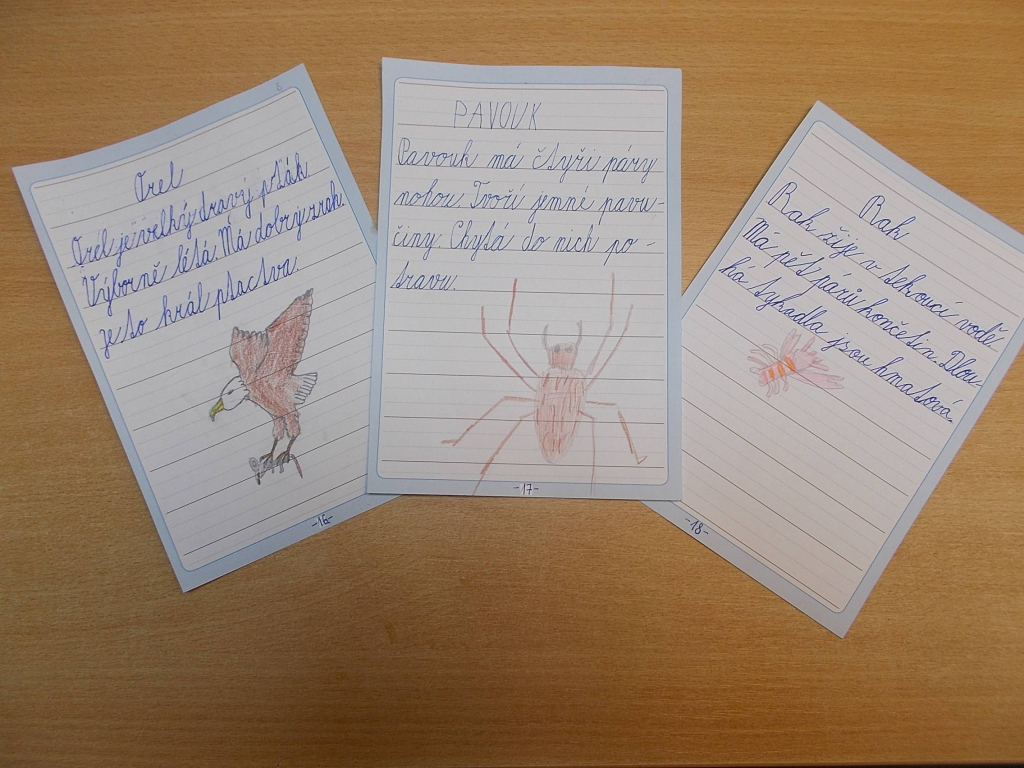 Orel
Orel je velký dravý pták.
Výborně létá. Má dobrý zrak.
Je to král ptactva.
-16-
PAVOUK
Pavouk má čtyři páry
nohou. Tvoří jemné pavu-
činy. Chytá do nich po-
travu.
-17-
Rak
Rak žije v tekoucí vodě.
Má pět párů končetin. Dlou-
há tykadla jsou hmatová.
-18-